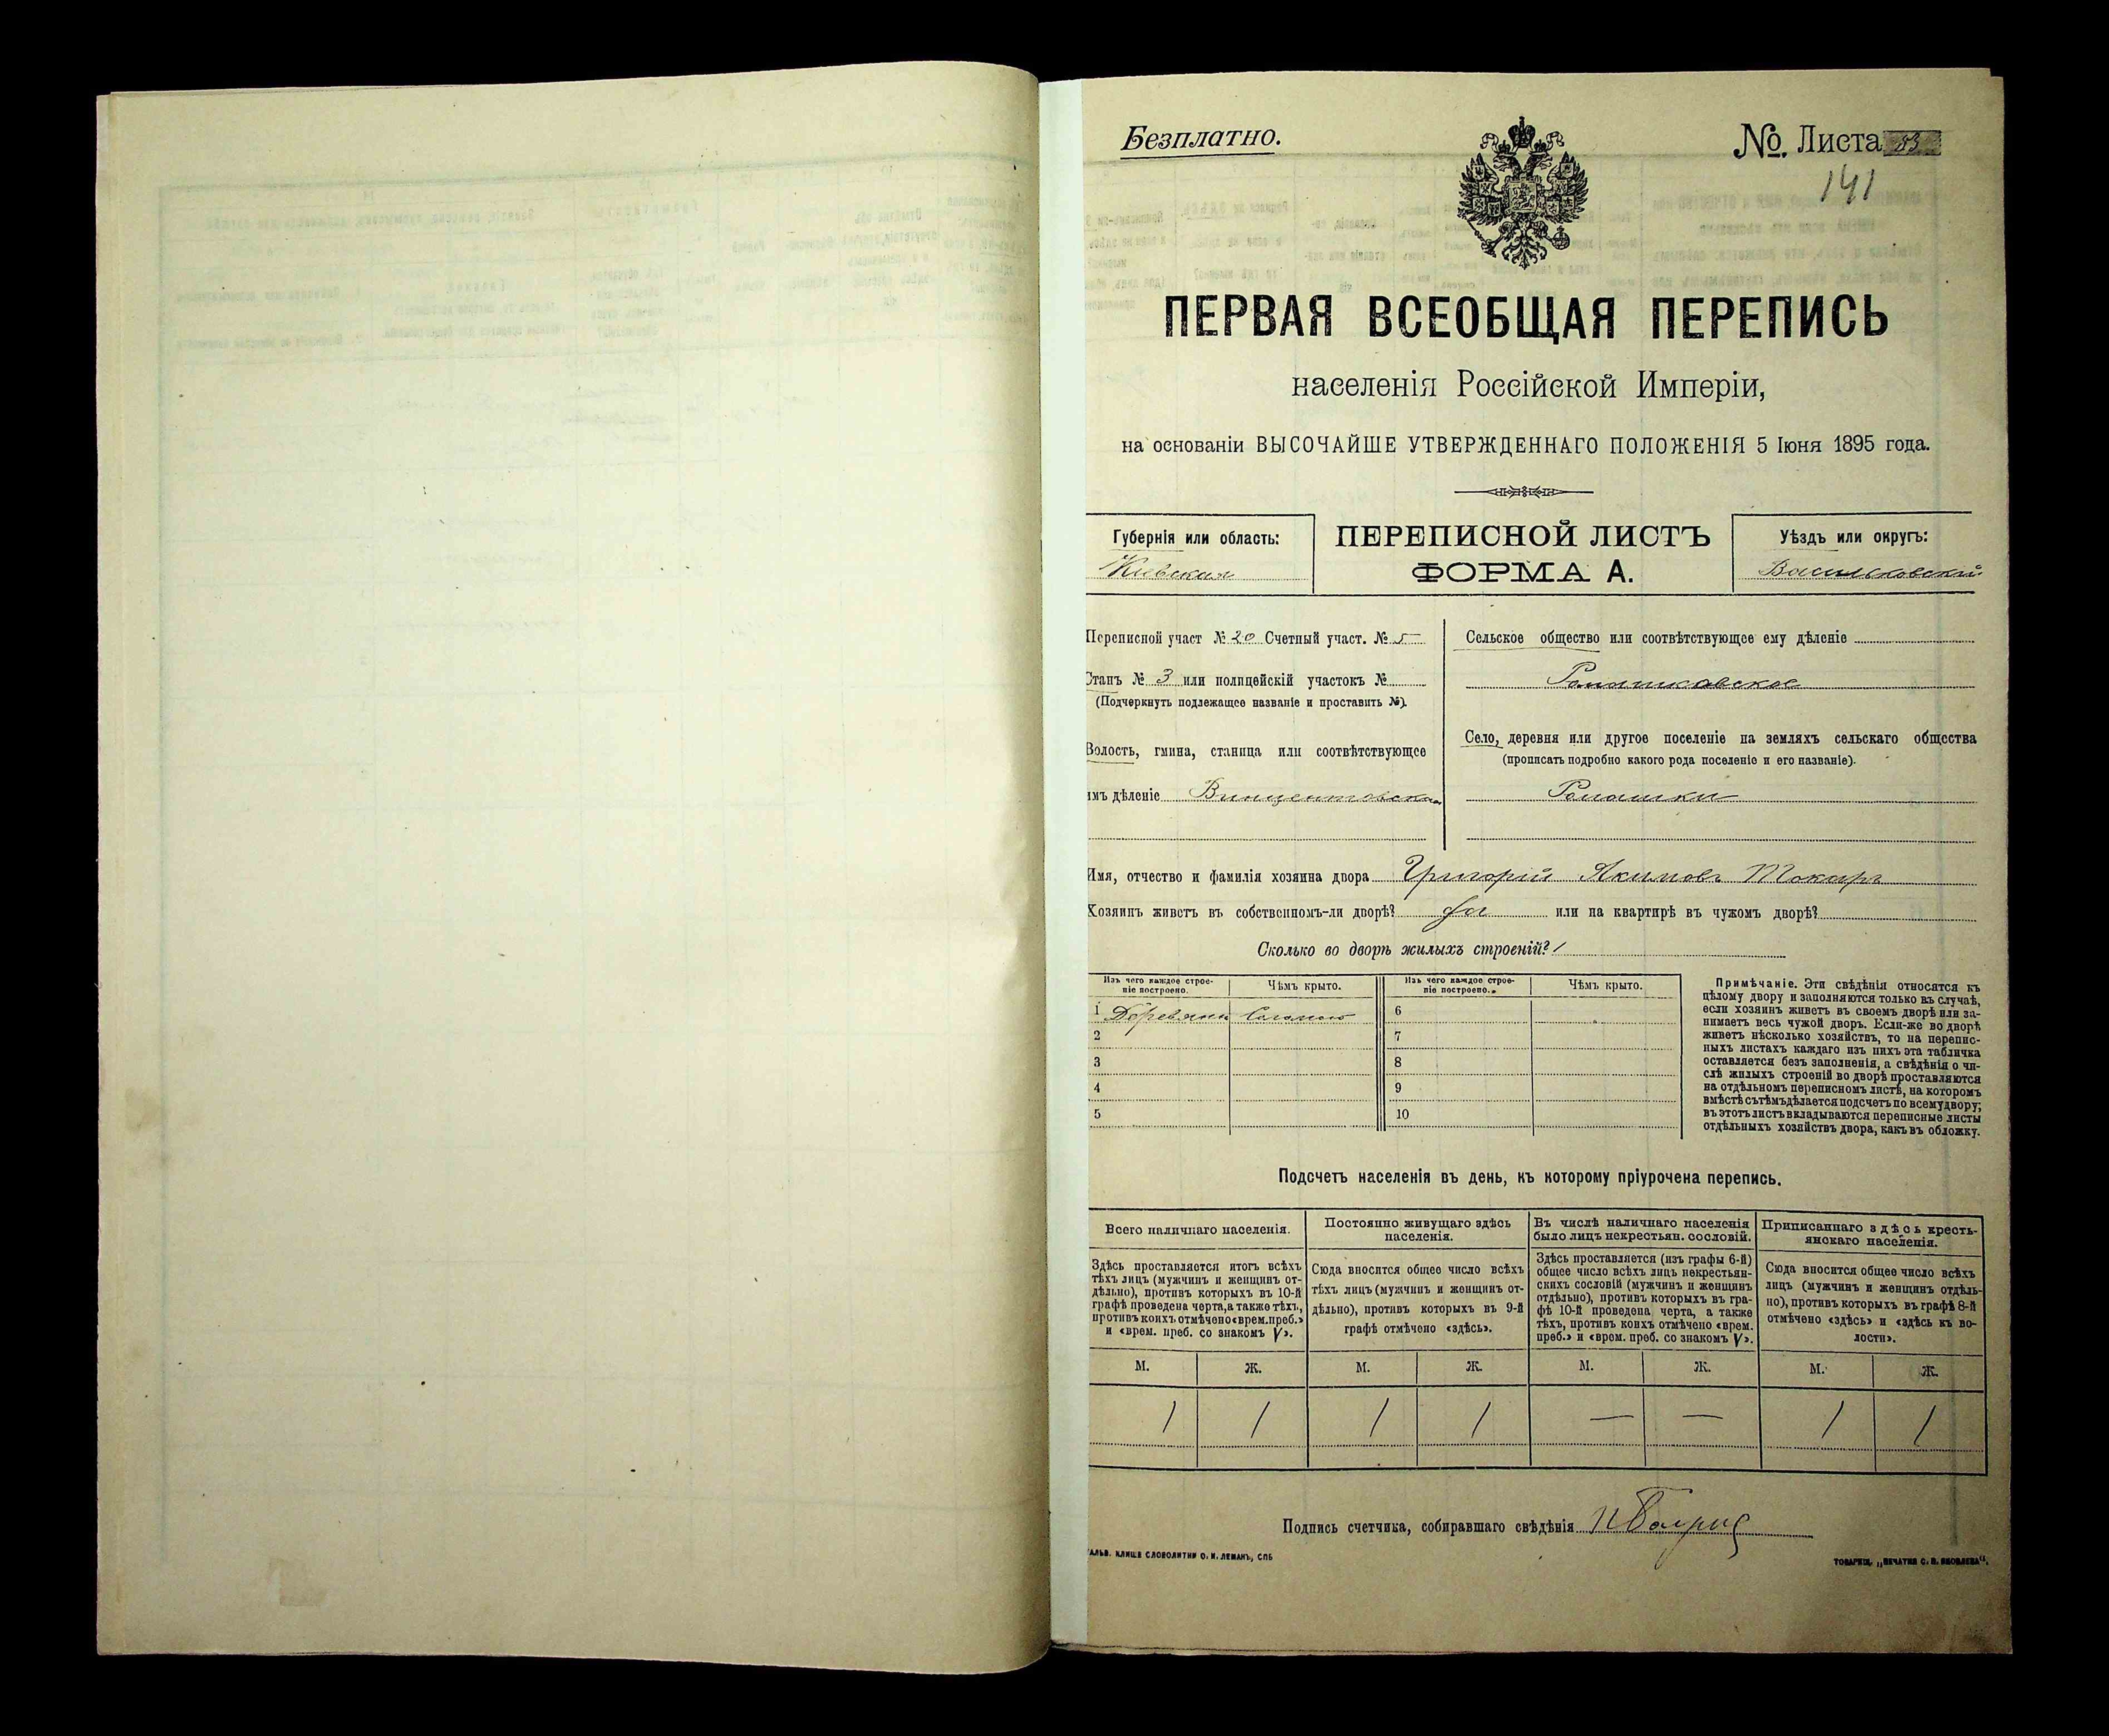 Безплатно.
№ Листа 53
141
ПЕРВАЯ ВСЕОБЩАЯ ПЕРЕПИСЬ
населенія Россійской Имперіи,
на основаніи ВЫСОЧАЙШЕ УТВЕРЖДЕННАГО ПОЛОЖЕНІЯ 5 Іюня 1895 года.
Губернія или область:
Кіевская
ПЕРЕПИСНОЙ ЛИСТЪ
ФОРМА А.
Уѣздъ или округъ:
Васильковскій
Переписной участ № 20 Счетный участ. № 5
Станъ № 3 или полицейскій участокъ №
(Подчеркнуть подлежащее названіе и проставить №).
Волость, гмина, станица или соотвѣтствующее
имъ дѣленіе Винцентовская
Сельское общество или соотвѣтствующее ему дѣленіе
Ромашковское
Село, деревня или другое поселеніе на земляхъ сельскаго общества
(прописать подробно какого рода поселеніе и его названіе).
Ромашки
Имя, отчество и фамилія хозяина двора Григорій Акимовъ Токарь
Хозяинъ живетъ въ собственномъ-ли дворѣ? да или на квартирѣ въ чужомъ дворѣ?
Сколько во дворѣ жилыхъ строеній? 1
Изъ чего каждое строе-
ніе построено.
Чѣмъ крыто.
Изъ чего каждое строе-
ніе построено.
Чѣмъ крыто.
1 Деревянн Соломою 6
2 7
3 8
4 9
5 10
Примѣчаніе. Эти свѣдѣнія относятся къ
цѣлому двору и заполняются только въ случаѣ,
если хозяинъ живетъ въ своемъ дворѣ или за-
нимаетъ весь чужой дворъ. Если-же во дворѣ
живетъ нѣсколько хозяйствъ, то на перепис-
ныхъ листахъ каждаго изъ нихъ эта табличка
оставляется безъ заполненія, а свѣдѣнія о чи-
слѣ жилыхъ строеній во дворѣ проставляются
на отдѣльномъ переписномъ листѣ, на которомъ
вмѣстѣ съ тѣмъ дѣлается подсчетъ по всему двору;
въ этотъ листъ вкладываются переписные листы
отдѣльныхъ хозяйствъ двора, какъ въ обложку.
Подсчетъ населенія въ день, къ которому пріурочена перепись.
Всего наличнаго населенія.
Здѣсь проставляется итогъ всѣхъ
тѣхъ лицъ (мужчинъ и женщинъ от-
дѣльно), противъ которыхъ въ 10-й
графѣ проведена черта, а также тѣхъ,
противъ коихъ отмѣчено «врем. преб.»
и «врем. преб. со знакомъ V».
Постоянно живущаго здѣсь
населенія.
Сюда вносится общее число всѣхъ
тѣхъ лицъ (мужчинъ и женщинъ от-
дѣльно), противъ которыхъ въ 9-й
графѣ отмѣчено «здѣсь».
Въ числѣ наличнаго населенія
было лицъ некрестьян. сословій.
Здѣсь проставляется (изъ графы 6-й)
общее число всѣхъ лицъ некрестьян-
скихъ сословій (мужчинъ и женщинъ
отдѣльно), противъ которыхъ въ гра-
фѣ 10-й проведена черта, а также
тѣхъ, противъ коихъ отмѣчено «врем.
преб.» и «врем. преб. со знакомъ V».
Приписаннаго здѣсь кресть-
янскаго населенія.
Сюда вносится общее число всѣхъ
лицъ (мужчинъ и женщинъ отдѣль-
но), противъ которыхъ въ графѣ 8-й
отмѣчено «здѣсь» и «здѣсь къ во-
лости».
М. Ж. М. Ж. М. Ж. М. Ж.
1 1 1 1 — — 1 1
Подпись счетчика, собиравшаго свѣдѣнія
АЛЬВ. КЛИШЕ СЛОВОЛИТНИ О. И. ЛЕМАНЪ, СПБ
ТОВАРИЩ. „ПЕЧАТНЯ С. П. ЯКОВЛЕВА“.